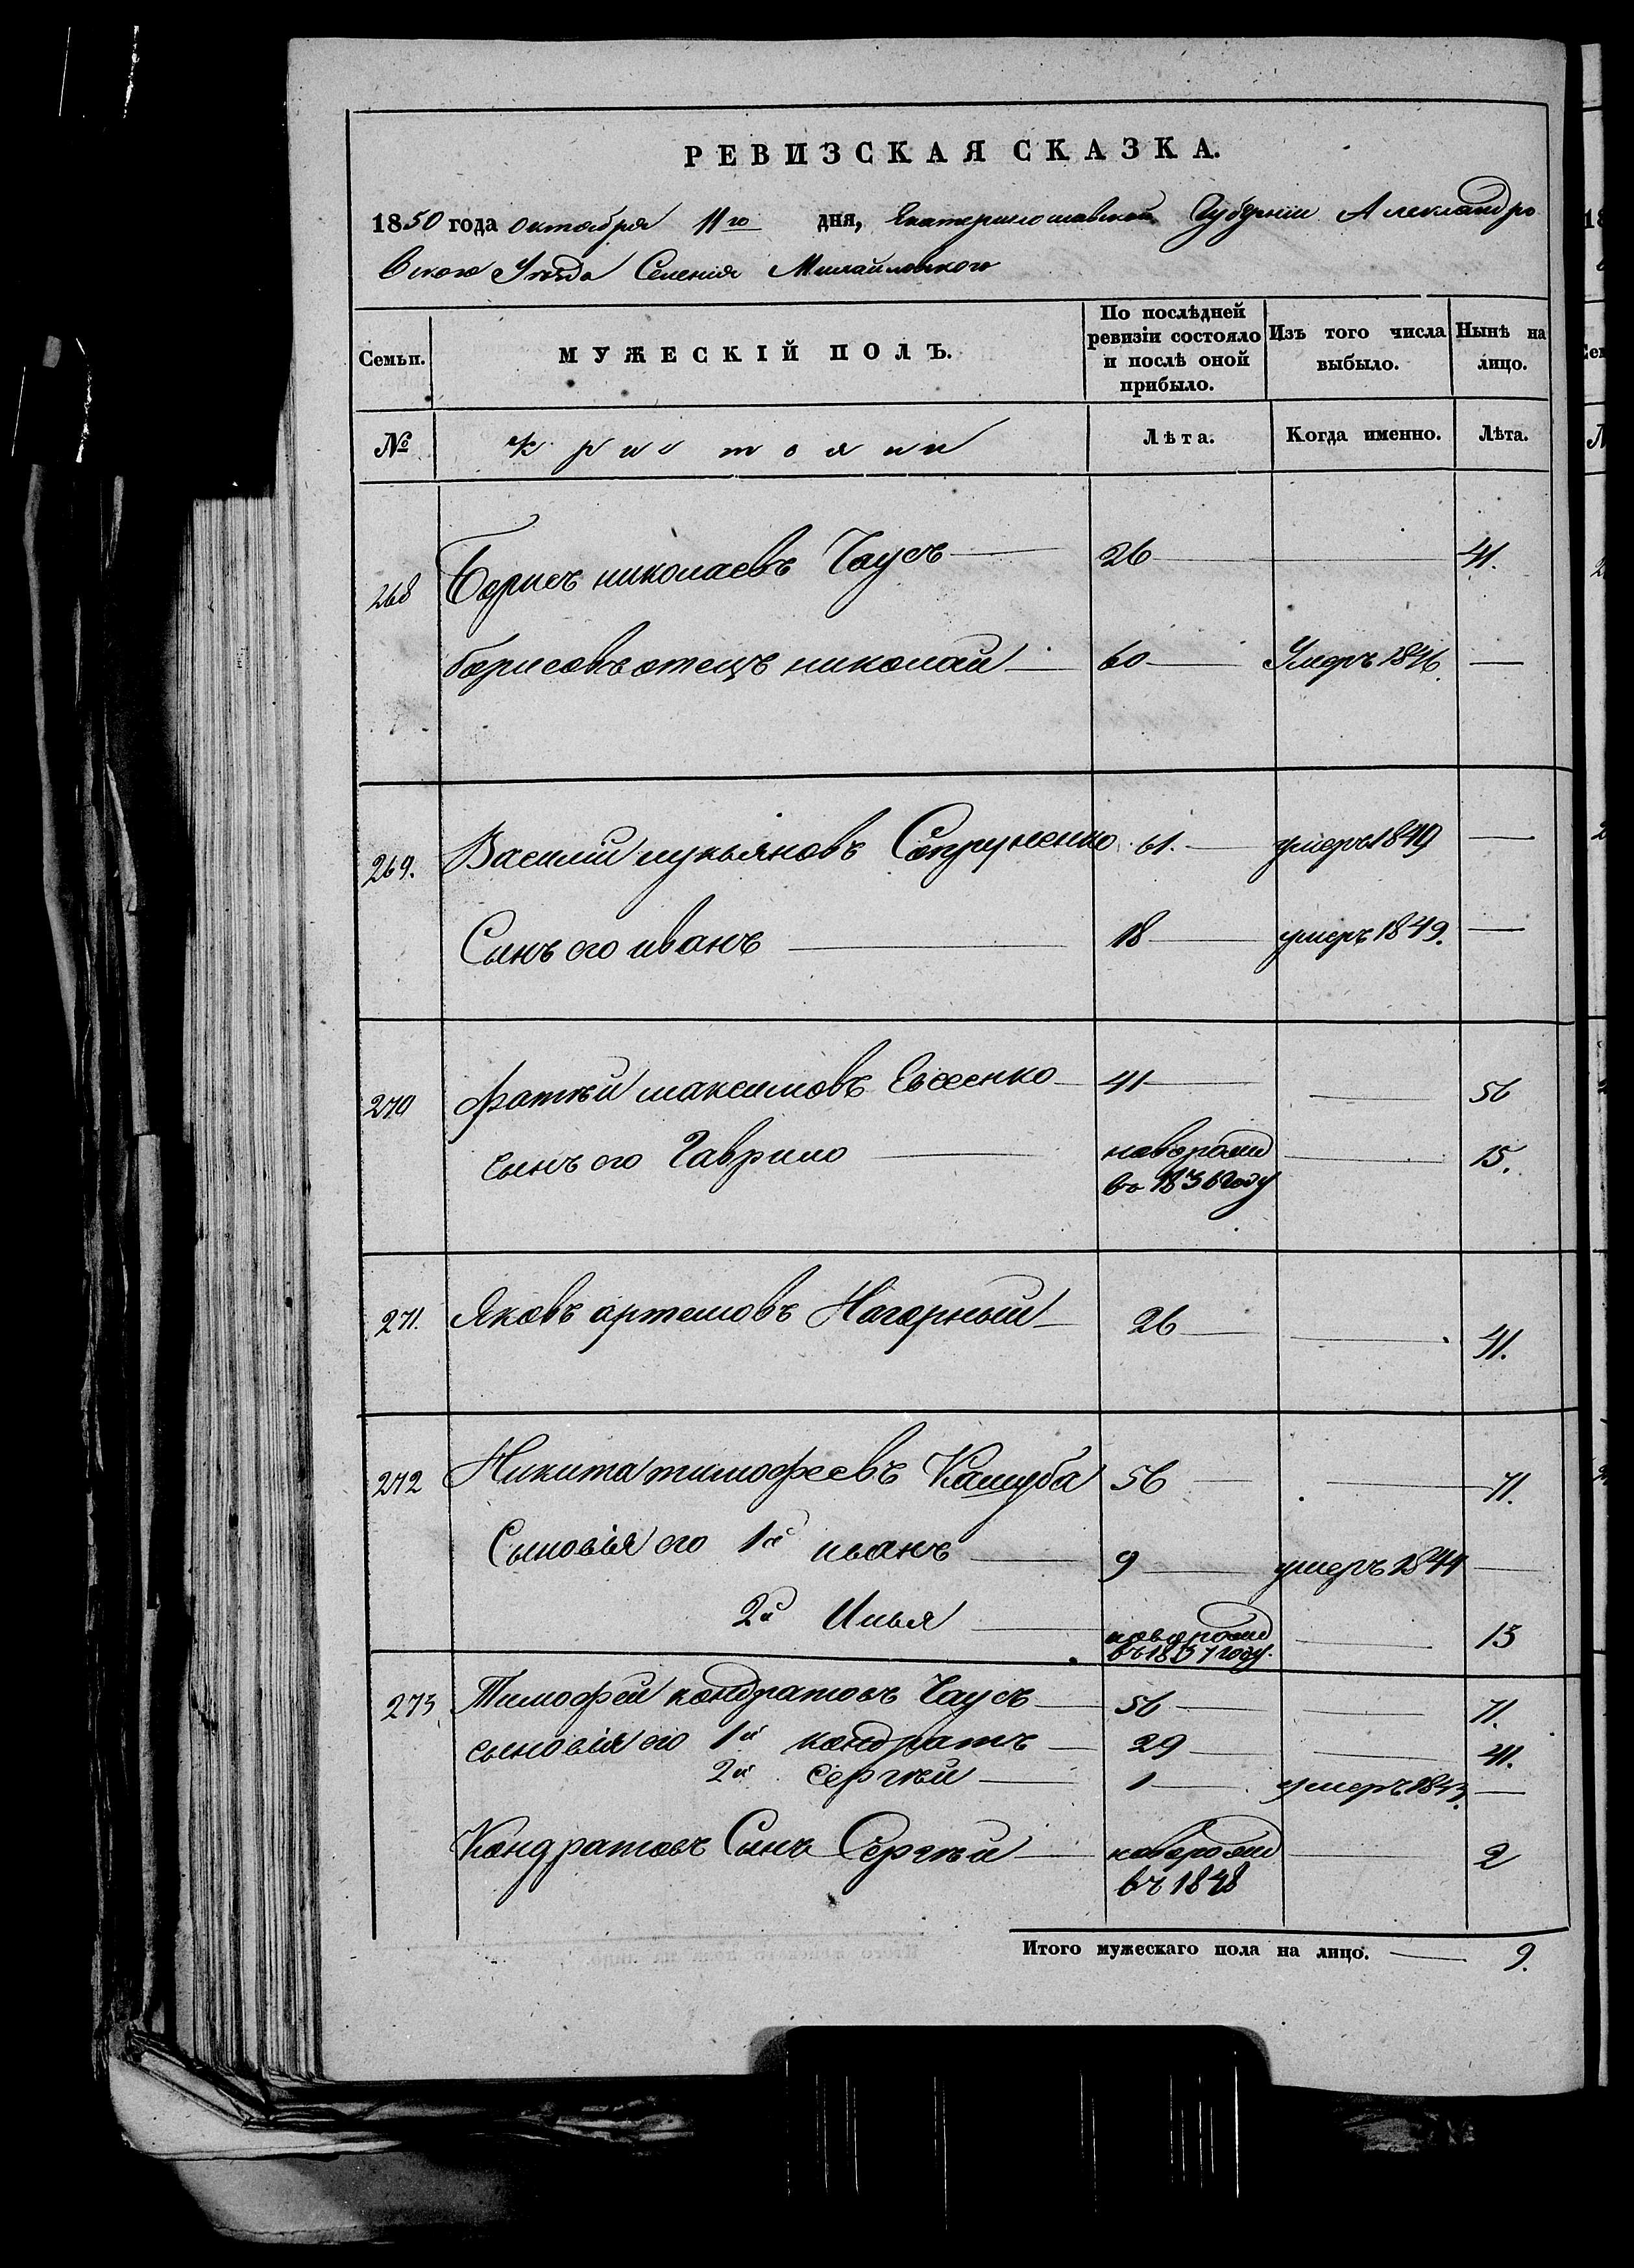 РЕВИЗСКАЯ СКАЗКА.
1850 года октября 11го дня, Екатеринославской Губерніи Александро
вского Уѣзда Селенія Михайловского
Семьи. МУЖЕСКІЙ ПОЛЪ. По послѣдней ревизіи состояло и послѣ оной прибыло. Изъ того числа выбыло. Нынѣ на лицо.
№ Лѣта. Когда именно. Лѣта.
268 Борисъ николаевъ Чаусъ 26 41.
борисовъ отецъ николай 60 Умеръ 1846.
269. Василій лукьяновъ Супруненко 61. умеръ 1849
Сынъ его иванъ 18 умеръ 1849.
270 фатѣй максимовъ Евсеенко 41 56
сынъ его Гаврило новорожд 15.
въ 1836 году
271. Яковъ артемовъ Нагорный 26 41.
272 Никита тимофеевъ Кашуба 56 71.
Сыновія его 1й иванъ 9 умеръ 1844
2й Илья новорожд 13
въ 1837 году.
273 Тимофей кондратовъ Чаусъ 56 71.
сыновія его 1й кондратъ 29 41.
2й сергѣй 1 умеръ 1843.
Кондратовъ Сынъ Сергѣй новорожд 2
въ 1848
Итого мужескаго пола на лицо. 9.